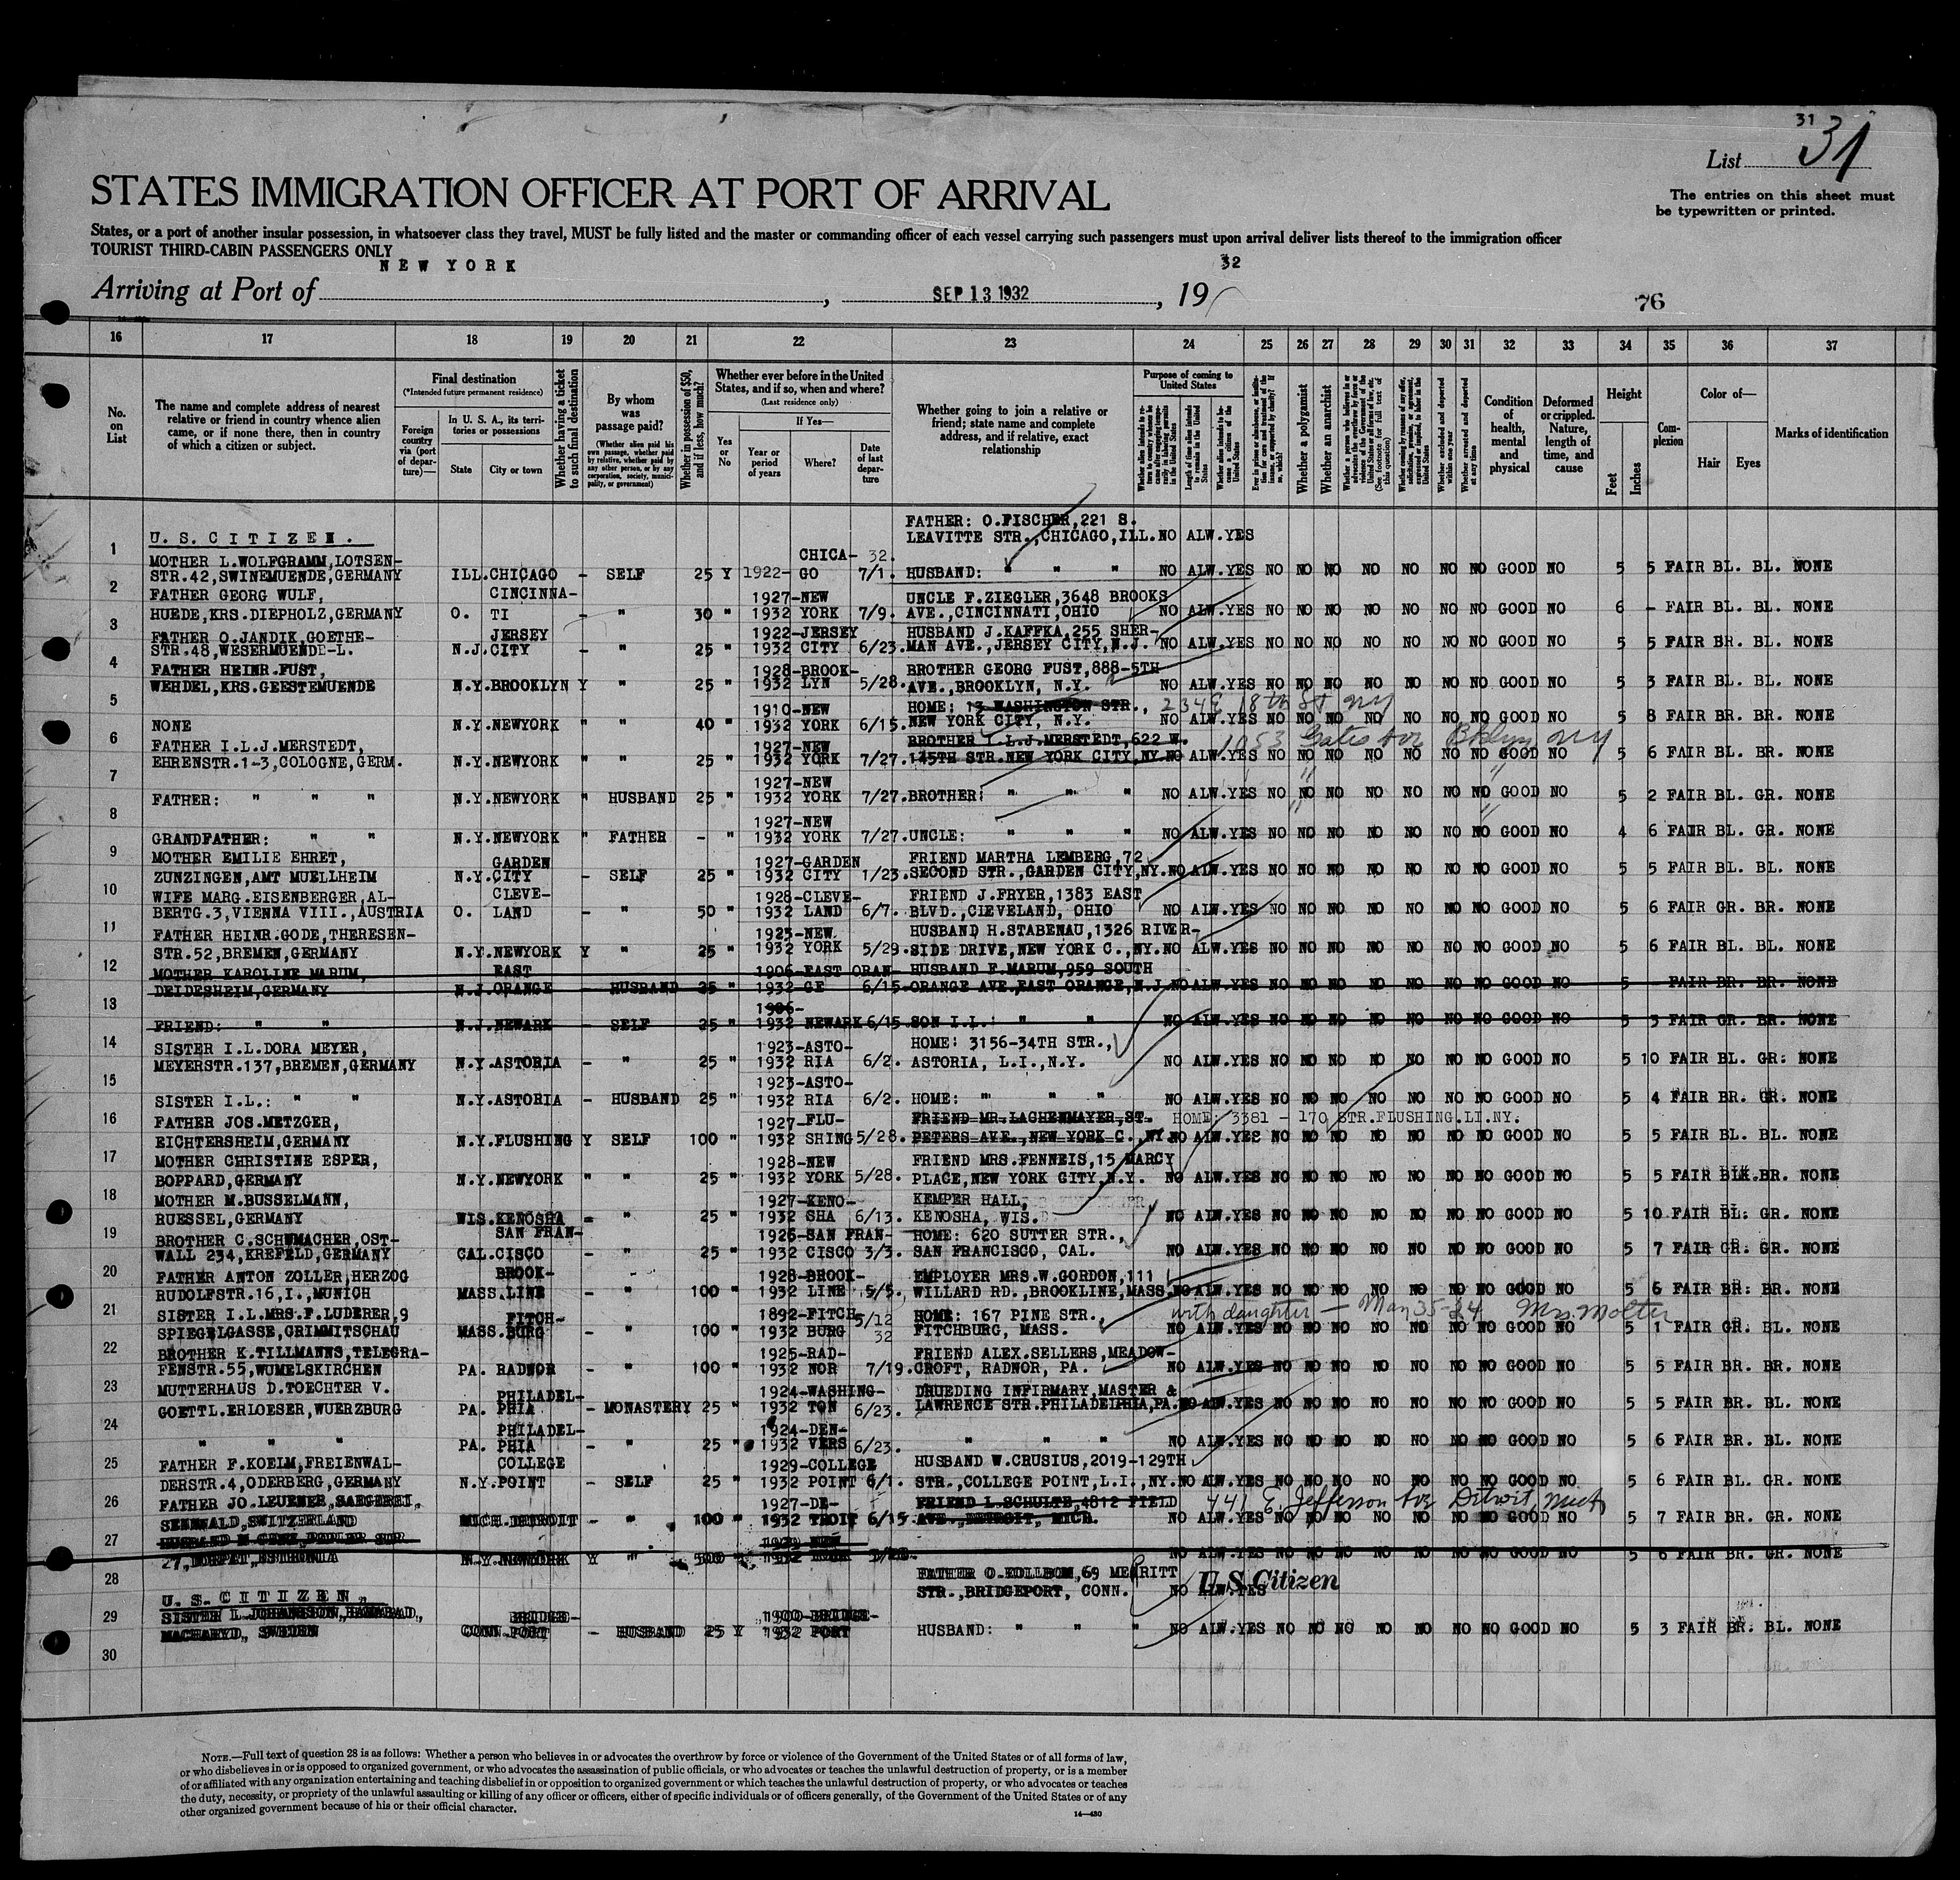 31
List 31
STATES IMMIGRATION OFFICER AT PORT OF ARRIVAL
The entries on this sheet must
be typewritten or printed.
States, or a port of another insular possession, in whatsoever class they travel, MUST be fully listed and the master or commanding officer of each vessel carrying such passengers must upon arrival deliver lists thereof to the immigration officer
TOURIST THIRD-CABIN PASSENGERS ONLY
NEW YORK
32
Arriving at Port of , SEP 13 1932 , 19
76
16 17 18 19 20 21 22 23 24 25 26 27 28 29 30 31 32 33 34 35 36 37
No. on List
The name and complete address of nearest relative or friend in country whence alien came, or if none there, then in country of which a citizen or subject.
Final destination
(*Intended future permanent residence)
Foreign country via (port of departure)—
In U. S. A., its territories or possessions
State City or town
Whether having a ticket to such final destination
By whom was passage paid?
(Whether alien paid his own passage, whether paid by relative, whether paid by any other person, or by any corporation, society, municipality, or government)
Whether in possession of $50, and if less, how much?
Whether ever before in the United States, and if so, when and where?
(Last residence only)
Yes or No
If Yes—
Year or period of years Where? Date of last departure
Whether going to join a relative or friend; state name and complete address, and if relative, exact relationship
Purpose of coming to United States
Whether a polygamist
Whether an anarchist
Condition of health, mental and physical
Deformed or crippled. Nature, length of time, and cause
Height
Feet Inches
Complexion
Color of—
Hair Eyes
Marks of identification
FATHER: O.FISCHER,221 S.
1 U.S.CITIZEN. LEAVITTE STR.,CHICAGO,ILL. NO ALW.YES
MOTHER L.WOLFGRAMM,LOTSEN- CHICA- 32.
2 STR.42,SWINEMUENDE,GERMANY ILL.CHICAGO - SELF 25 Y 1922- GO 7/1. HUSBAND: " " " NO ALW.YES NO NO NO NO NO NO NO GOOD NO 5 5 FAIR BL. BL. NONE
FATHER GEORG WULF, CINCINNA- 1927-NEW UNCLE F.ZIEGLER,3648 BROOKS
3 HUEDE,KRS.DIEPHOLZ,GERMANY O. TI - " 30 " 1932 YORK 7/9. AVE.,CINCINNATI,OHIO NO ALW.YES NO NO NO NO NO NO NO GOOD NO 6 - FAIR BL. BL. NONE
FATHER O.JANDIK,GOETHE- JERSEY 1922-JERSEY HUSBAND J.KAFFKA,255 SHER-
4 STR.48,WESERMUENDE-L. N.J.CITY - " 25 " 1932 CITY 6/23. MAN AVE.,JERSEY CITY,N.J. NO ALW.YES NO NO NO NO NO NO NO GOOD NO 5 5 FAIR BR. BL. NONE
FATHER HEINR.FUST, 1928-BROOK- BROTHER GEORG FUST,888-5TH
5 WEHDEL,KRS.GEESTEMUENDE N.Y.BROOKLYN Y " 25 " 1932 LYN 5/28. AVE.,BROOKLYN, N.Y. NO ALW.YES NO NO NO NO NO NO NO GOOD NO 5 3 FAIR BL. BL. NONE
1910-NEW HOME: 13 WASHINGTON STR., 234 E 18th St ny
6 NONE N.Y.NEWYORK " " 40 " 1932 YORK 6/15. NEW YORK CITY, N.Y. NO ALW.YES NO NO NO NO NO NO NO GOOD NO 5 8 FAIR BR. BR. NONE
FATHER I.L.J.MERSTEDT, 1927-NEW BROTHER I.L.J.MERSTEDT,622 W. 1053 Gates Ave Bklyn ny
7 EHRENSTR.1-3,COLOGNE,GERM. N.Y.NEWYORK " " 25 " 1932 YORK 7/27. 145TH STR.NEW YORK CITY,NY. NO ALW.YES NO NO NO NO NO NO NO GOOD NO 5 6 FAIR BL. BR. NONE
1927-NEW " "
8 FATHER: " " " N.Y.NEWYORK " HUSBAND 25 " 1932 YORK 7/27. BROTHER: " " " NO ALW.YES NO NO NO NO NO NO NO GOOD NO 5 2 FAIR BL. GR. NONE
1927-NEW " "
9 GRANDFATHER: " " N.Y.NEWYORK " FATHER - " 1932 YORK 7/27. UNCLE: " " " NO ALW.YES NO NO NO NO NO NO NO GOOD NO 4 6 FAIR BL. GR. NONE
MOTHER EMILIE EHRET, GARDEN 1927-GARDEN FRIEND MARTHA LEMBERG,72
10 ZUNZINGEN,AMT MUELLHEIM N.Y.CITY - SELF 25 " 1932 CITY 1/23. SECOND STR.,GARDEN CITY,NY. NO ALW.YES NO NO NO NO NO NO NO GOOD NO 5 5 FAIR BL. BL. NONE
WIFE MARG.EISENBERGER,AL- CLEVE- 1928-CLEVE- FRIEND J.FRYER,1383 EAST
11 BERTG.3,VIENNA VIII.,AUSTRIA O. LAND - " 50 " 1932 LAND 6/7. BLVD.,CLEVELAND, OHIO NO ALW.YES NO NO NO NO NO NO NO GOOD NO 5 6 FAIR GR. BR. NONE
FATHER HEINR.GODE,THERESEN- 1923-NEW HUSBAND H.STABENAU,1326 RIVER-
12 STR.52,BREMEN,GERMANY N.Y.NEWYORK Y " 25 " 1932 YORK 5/29. SIDE DRIVE,NEW YORK C.,NY. NO ALW.YES NO NO NO NO NO NO NO GOOD NO 5 6 FAIR BL. BL. NONE
MOTHER KAROLINE MARUM, EAST 1906-EAST ORAN- HUSBAND F.MARUM,959 SOUTH
13 DEIDESHEIM,GERMANY N.J.ORANGE - HUSBAND 25 " 1932 GE 6/15 ORANGE AVE.EAST ORANGE,N.J. NO ALW.YES NO NO NO NO NO NO NO GOOD NO 5 FAIR BR. BR. NONE
1906-
FRIEND: " " N.J.NEWARK - SELF 25 " 1932 NEWARK 6/15 SON I.L.: " " NO ALW.YES NO NO NO NO NO NO NO GOOD NO 5 3 FAIR GR. BR. NONE
14 SISTER I.L.DORA MEYER, 1923-ASTO- HOME: 3156-34TH STR.,
MEYERSTR.137,BREMEN,GERMANY N.Y.ASTORIA - " 25 " 1932 RIA 6/2. ASTORIA, L.I.,N.Y. NO ALW.YES NO NO NO NO NO NO NO GOOD NO 5 10 FAIR BL. GR. NONE
15 1923-ASTO-
SISTER I.L.: " " N.Y.ASTORIA - HUSBAND 25 " 1932 RIA 6/2. HOME: " " " NO ALW.YES NO NO NO NO NO NO NO GOOD NO 5 4 FAIR BR. GR. NONE
16 FATHER JOS.METZGER, 1927-FLU- FRIEND MR.LACHENMAYER,ST. HOME: 3381 - 170 STR.FLUSHING.LI.NY.
EICHTERSHEIM,GERMANY N.Y.FLUSHING Y SELF 100 " 1932 SHING 5/28. PETERS AVE.,NEW YORK C.,NY. NO ALW.YES NO NO NO NO NO NO NO GOOD NO 5 5 FAIR BL. BL. NONE
17 MOTHER CHRISTINE ESPER, 1928-NEW FRIEND MRS.FENNEIS,15 MARCY
BOPPARD,GERMANY N.Y.NEWYORK " " 25 " 1932 YORK 5/28. PLACE,NEW YORK CITY,N.Y. NO ALW.YES NO NO NO NO NO NO NO GOOD NO 5 5 FAIR BLK.BR. NONE
18 MOTHER M.BUSSELMANN, 1927-KENO- KEMPER HALL,
RUESSEL,GERMANY WIS.KENOSHA - " 25 " 1932 SHA 6/13. KENOSHA, WIS. NO ALW.YES NO NO NO NO NO NO NO GOOD NO 5 10 FAIR BL. GR. NONE
19 BROTHER C.SCHUMACHER,OST- SAN FRAN- 1926-SAN FRAN- HOME: 620 SUTTER STR.,
WALL 234,KREFELD,GERMANY CAL.CISCO - " 25 " 1932 CISCO 3/3. SAN FRANCISCO, CAL. NO ALW.YES NO NO NO NO NO NO NO GOOD NO 5 7 FAIR GR. GR. NONE
20 FATHER ANTON ZOLLER,HERZOG BROOK- 1928-BROOK- EMPLOYER MRS.W.GORDON,111
RUDOLFSTR.16,I.,MUNICH MASS.LINE - " 100 " 1932 LINE 5/5. WILLARD RD.,BROOKLINE,MASS. NO ALW.YES NO NO NO NO NO NO NO GOOD NO 5 6 FAIR BR. BR. NONE
21 SISTER I.L.MRS.F.LUDERER,9 FITCH- 1892-FITCH 5/12 HOME: 167 PINE STR., with daughter — Mrs. Molter
SPIEGELGASSE,GRIMMITSCHAU MASS.BURG - " 100 " 1932 BURG 32 FITCHBURG, MASS. NO ALW.YES NO NO NO NO NO NO NO GOOD NO 5 1 FAIR GR. BL. NONE
22 BROTHER K.TILLMANNS,TELEGRA- 1925-RAD- FRIEND ALEX.SELLERS,MEADOW-
FENSTR.55,WUMELSKIRCHEN PA. RADNOR - " 100 " 1932 NOR 7/19. CROFT, RADNOR, PA. NO ALW.YES NO NO NO NO NO NO NO GOOD NO 5 5 FAIR BR. BR. NONE
23 MUTTERHAUS D.TOECHTER V. PHILADEL- 1924-WASHING- DRUEDING INFIRMARY,MASTER &
GOETTL.ERLOESER,WUERZBURG PA. PHIA - MONASTERY 25 " 1932 TON 6/23. LAWRENCE STR.PHILADELPHIA,PA. NO ALW.YES NO NO NO NO NO NO NO GOOD NO 5 5 FAIR BR. BL. NONE
24 PHILADEL- 1924-DEN-
" " " PA. PHIA - " 25 " 1932 VERS 6/23. " " " NO ALW.YES NO NO NO NO NO NO NO GOOD NO 5 6 FAIR BR. BL. NONE
25 FATHER F.KOELM,FREIENWAL- COLLEGE 1929-COLLEGE HUSBAND W.CRUSIUS,2019-129TH
DERSTR.4,ODERBERG,GERMANY N.Y.POINT - SELF 25 " 1932 POINT 6/1. STR.,COLLEGE POINT,L.I.,NY. NO ALW.YES NO NO NO NO NO NO NO GOOD NO 5 6 FAIR BL. GR. NONE
26 FATHER JO.LEUENER,SAEGEREI, 1927-DE- FRIEND L.SCHULTE,4812 FIELD 441 E. Jefferson Ave Detroit, Mich
SENNWALD,SWITZERLAND MICH.DETROIT - " 100 " 1932 TROIT 6/15 AVE.,DETROIT, MICH. NO ALW.YES NO NO NO NO NO NO NO GOOD NO 5 7 FAIR BR. GR. NONE
27 HUSBAND
N.Y.NEWYORK Y " 500 " 1932 NO ALW.YES NO NO NO NO NO NO NO GOOD NO 5 6 FAIR BR. GR. NONE
28 FATHER O.KOLLBOM,69 MERRITT
U.S.CITIZEN. STR.,BRIDGEPORT, CONN. NO ALW.YES U.S. Citizen
29 SISTER L.JOHANSSON, BRIDGE- 1900-BRIDGE-
SWEDEN CONN.PORT - HUSBAND 25 Y 1932 PORT HUSBAND: " " " NO ALW.YES NO NO NO NO NO NO NO GOOD NO 5 3 FAIR BR. BL. NONE
30
NOTE.—Full text of question 28 is as follows: Whether a person who believes in or advocates the overthrow by force or violence of the Government of the United States or of all forms of law,
or who disbelieves in or is opposed to organized government, or who advocates the assassination of public officials, or who advocates or teaches the unlawful destruction of property, or is a member
of or affiliated with any organization entertaining and teaching disbelief in or opposition to organized government or which teaches the unlawful destruction of property, or who advocates or teaches
the duty, necessity, or propriety of the unlawful assaulting or killing of any officer or officers, either of specific individuals or of officers generally, of the Government of the United States or of any
other organized government because of his or their official character.
14—430